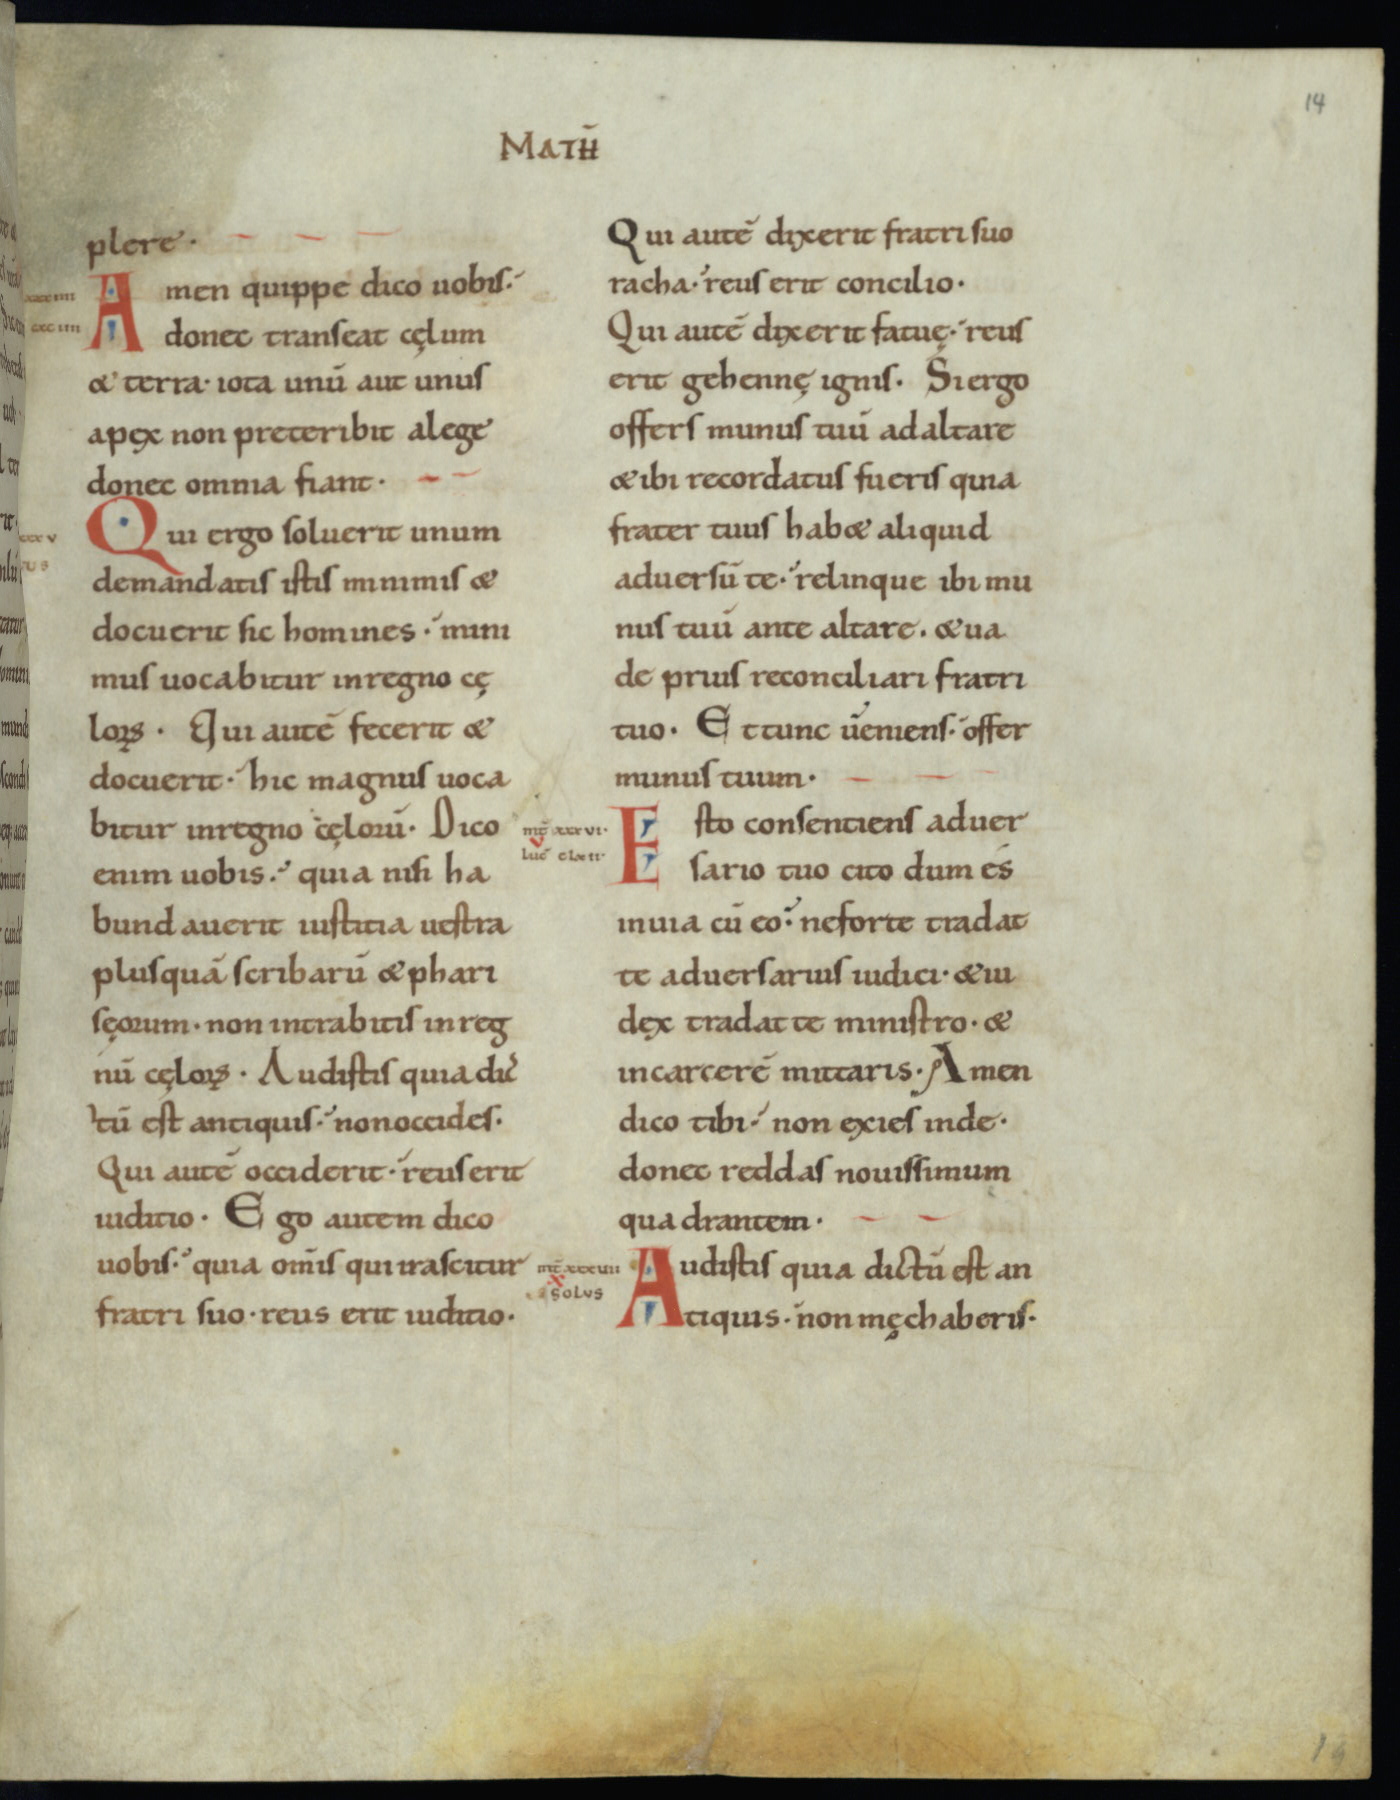 14
MATH̄
plere·
Amen quippe dico uobis·
donec transeat cęlum
& terra· iota unū aut unus
apęx non preteribit alege
donec omnia fiant·
Qui ergo soluerit unum
demandatis istis minimis &
docuerit sic homines· mini
mus uocabitur inregno cę
loꝝ· Qui autē fecerit &
docuerit· hic magnus uoca
bitur inregno cęlorū· Dico
enim uobis· quia nisi ha
bundauerit iustitia uestra
plusquā scribarū & phari
sęorum· non intrabitis inreg
nū cęloꝝ· Audistis quia dic
tū est antiquis· non occides·
Qui autē occiderit· reus erit
iuditio· Ego autem dico
uobis· quia om̄is qui irascitur
fratri suo· reus erit iuditio·
Qui autē dixerit fratri suo
racha· reus erit concilio·
Qui autē dixerit fatuę· reus
erit gehennę ignis· Si ergo
offers munus tuū ad altare
& ibi recordatus fueris quia
frater tuus hab& aliquid
aduersū te· relinque ibi mu
nus tuū ante altare· & ua
de prius reconciliari fratri
tuo· Et tunc ueniens· offer
munus tuum·
mt̄ xxxvi·
v
luc̄ clxii·
Esto consentiens aduer
sario tuo cito dum es
inuia cū eo· neforte tradat
te aduersarius iudici· & iu
dęx tradat te ministro· &
incarcerē mittaris· Amen
dico tibi· non exies inde·
donec reddas nouissimum
quadrantem·
mt̄ xxxvii
x
SOLVS
Audistis quia dictū est an
tiquis· non męchaberis·